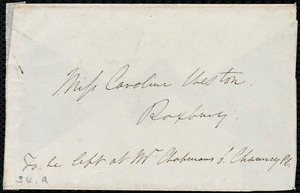 Miss Caroline Weston.
Roxbury.
To be left at Mr Chapmans 6. Chauncy Pl.
34.9